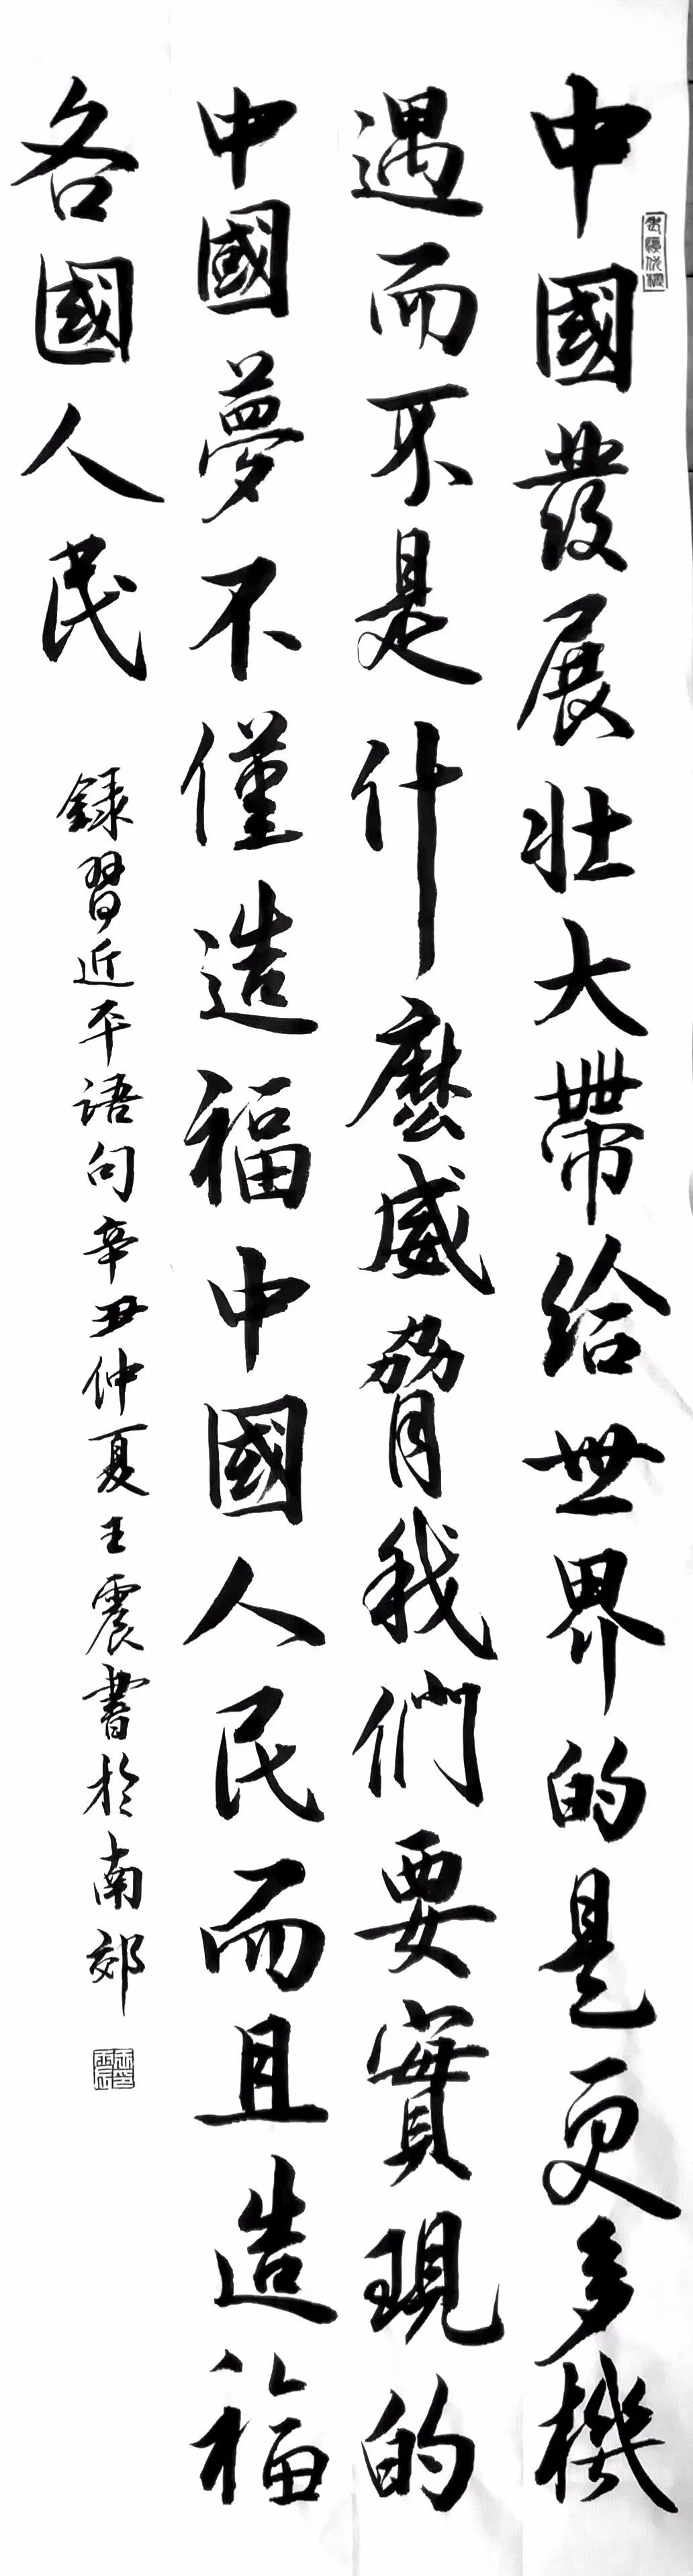 中國發展壯大帶給世界的是更多機
遇而不是什麼威脅我們要實現的
中國夢不僅造福中國人民而且造福
各國人民
録習近平語句辛丑仲夏王震書於南郊